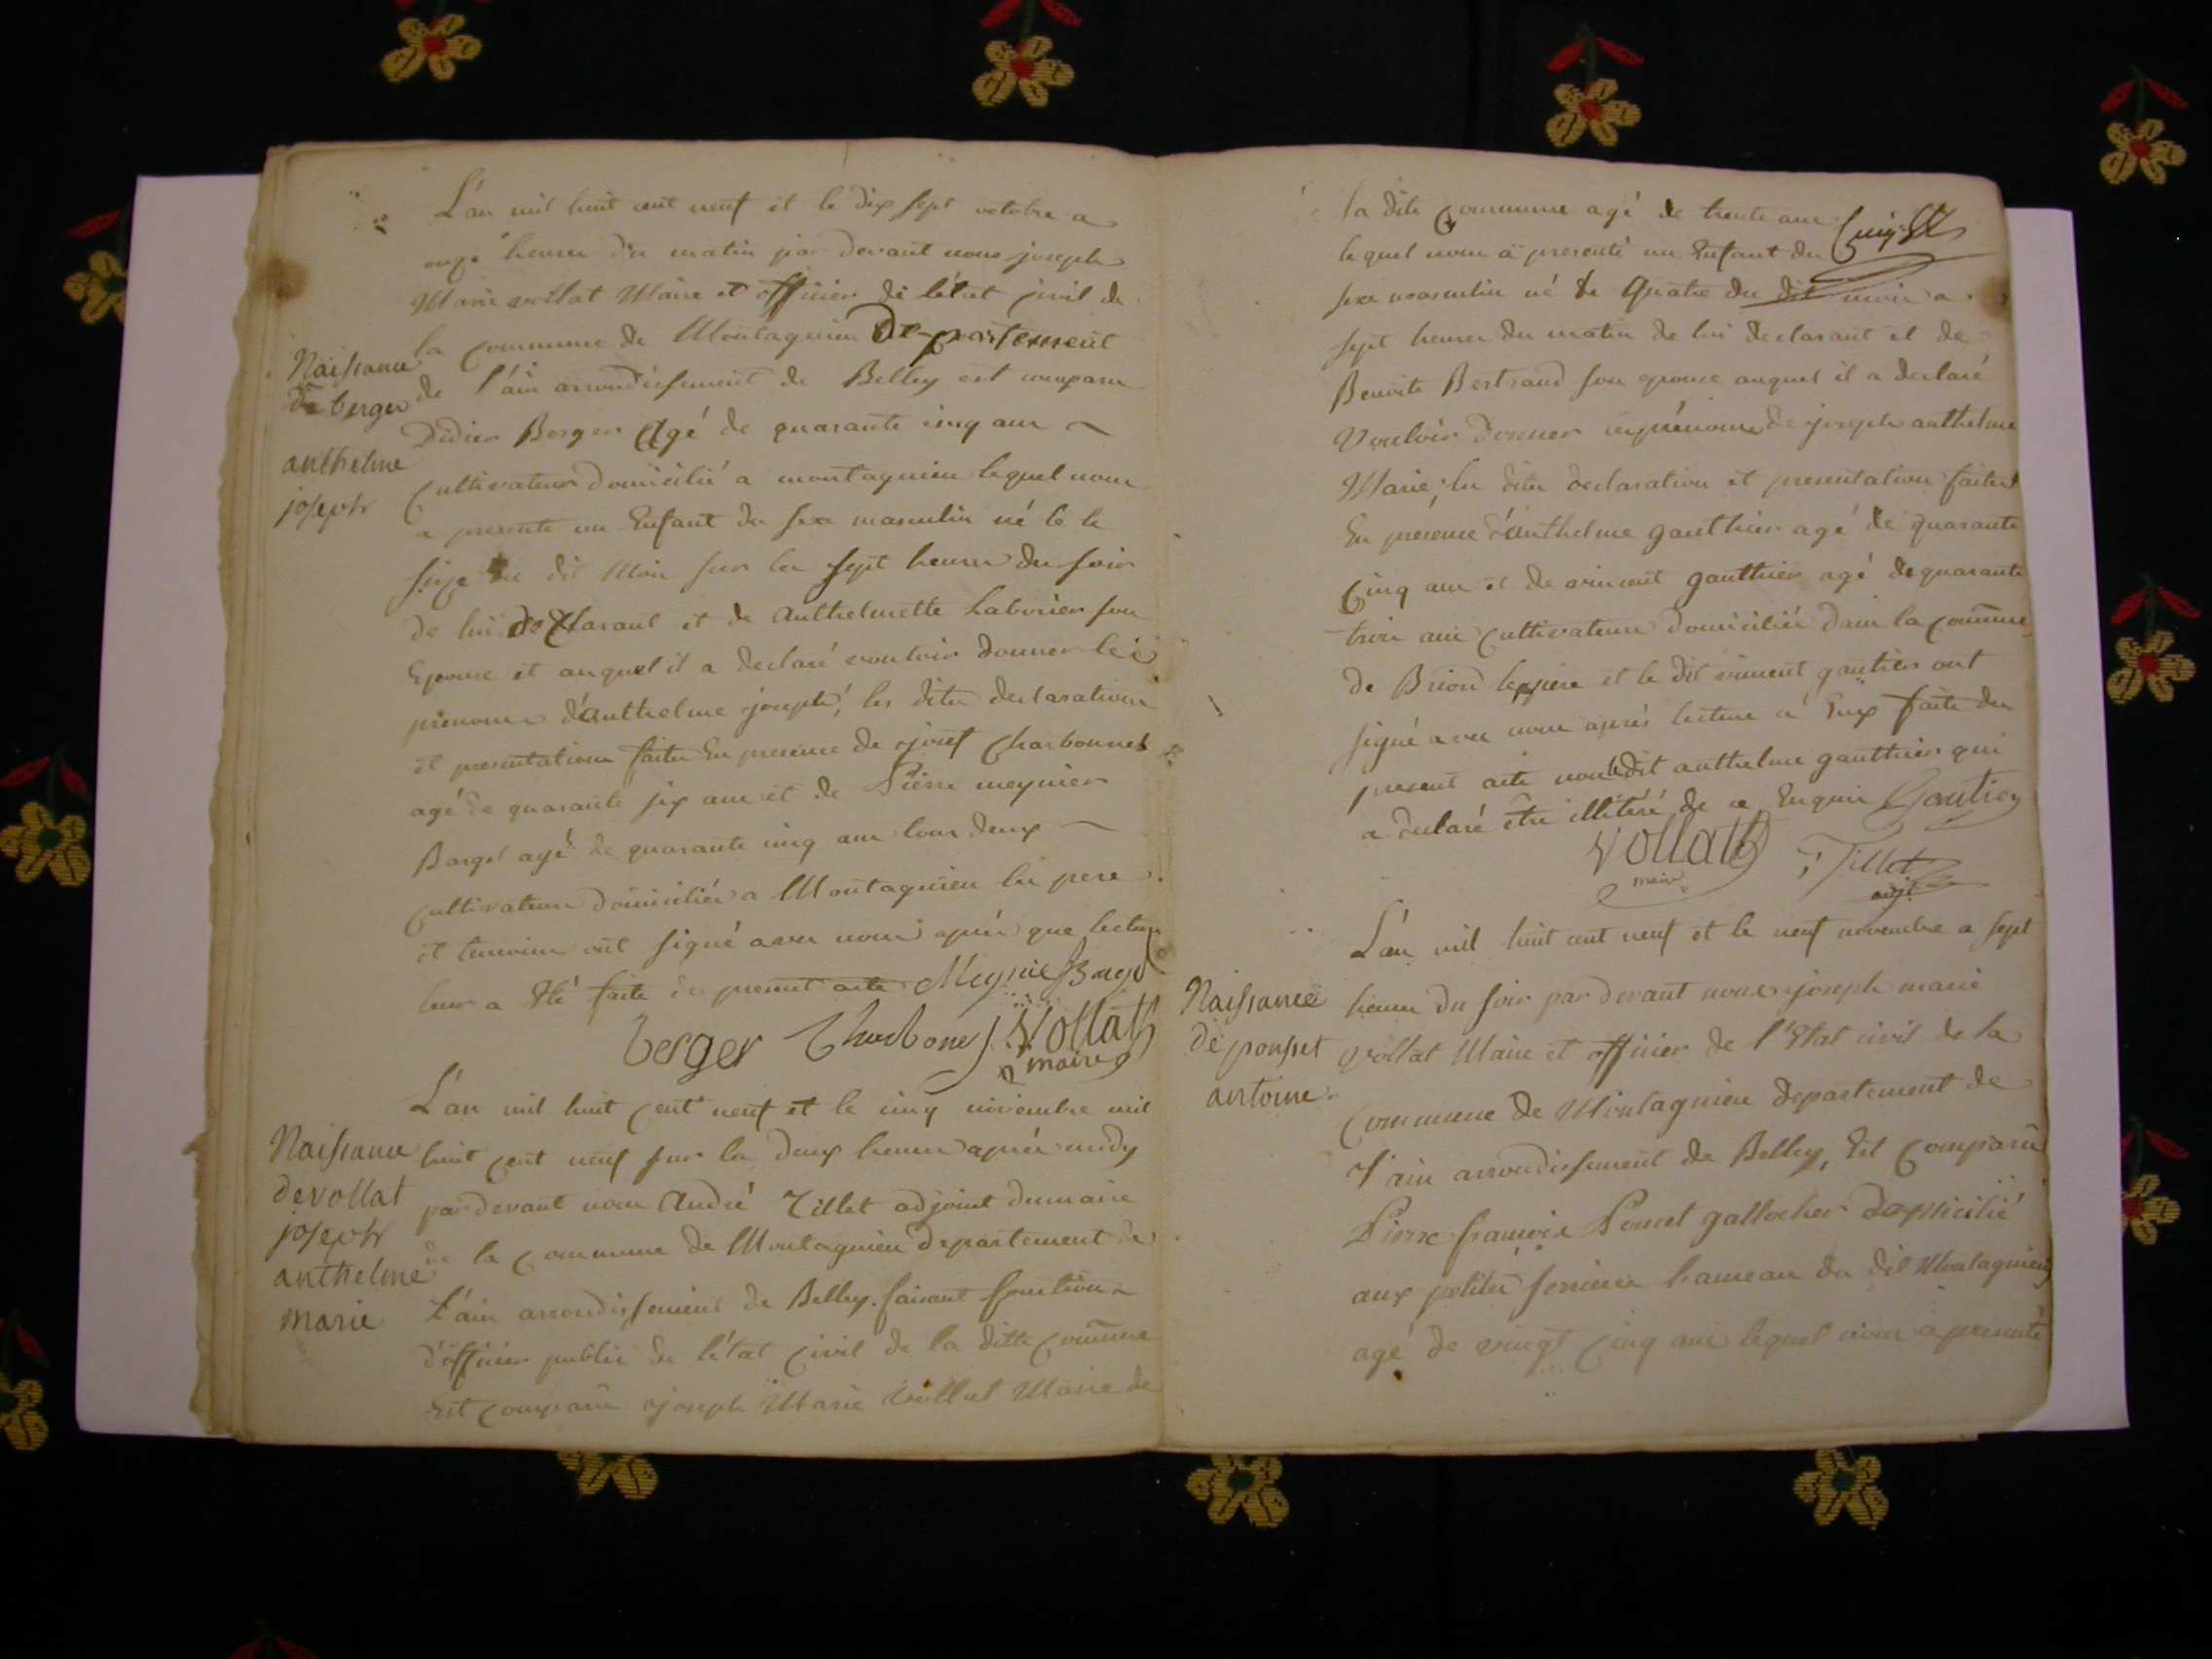 L'an mil huit cent neuf et le dix sept octobre a
onze heures du matin par devant nous joseph
Marie vollat Maire et officier de l'état civil de
la commune de Montagnieu Departement
de l'ain arrondissement de Belley est comparu
Didier Berger Agé de quarante cinq ans
Cultivateur domicilié a montagnieu lequel nous
a presenté un Enfant du sexe masculin né le le
seize du dit Mois sur les sept heures du soir
de lui declarant et de Anthelmette Laborier son
Epouse et auquel il a declaré vouloir donner les
prenoms d'Anthelme joseph, les dites declarations
et presentations faites En presence de josef Charbonnet
agé de quarante six ans et de Pierre meynier
Barget agé de quarante cinq ans tous deux
cultivateurs domiciliés a Montagnieu les pere
et temoins ont signé avec nous après que lecture
leur a Eté faite du present acte Meynie Barget
berger Charbone J. Vollat
maire
Naissance
de berger
anthelme
joseph
L'an mil huit cent neuf et le cinq novembre mil
huit cent neuf sur les deux heures après midy
par devant nous André Tillet adjoint du maire
de la commune de Montagnieu departement de
l'ain arrondissement de Belley. faisant fonction
d'officier public de l'état civil de la ditte commune
Est comparu joseph Marie Vollat Maire de
Naissance
de vollat
joseph
anthelme
marie
la dite Commune agé de trente ans
lequel nous a presenté un Enfant du
sexe masculin né le Quatre du dit mois a
sept heures du matin de lui declarant et de
Benoite Bertrand son epouse auquel il a declaré
Vouloir donner les prénoms de joseph anthelme
Marie; les dites declaration et presentation faites
En présence d'Anthelme gauthier agé de quarante
Cinq ans et de vincent gauthier agé de quarante
trois ans cultivateurs domiciliés dans la commune
de Briord le pere et le dit vincent gautier ont
signé avec nous après lecture a Eux faite du
present acte non le dit anthelme gauthier qui
a declaré être illitéré de ce Enquis Gautier
Vollat
maire
Tillet
adjt
L'an mil huit cent neuf et le neuf novembre a sept
heures du soir par devant nous joseph marie
vollat Maire et officier de l'Etat civil de la
Commune de Montagnieu departement de
l'ain arrondissement de Belley, Est Comparu
Pierre françois Poncet gallocher domicilié
aux petites serrieres hameau du dit Montagnieu
agé de vingt Cinq ans lequel nous a presenté
Naissance
de ponset
antoine